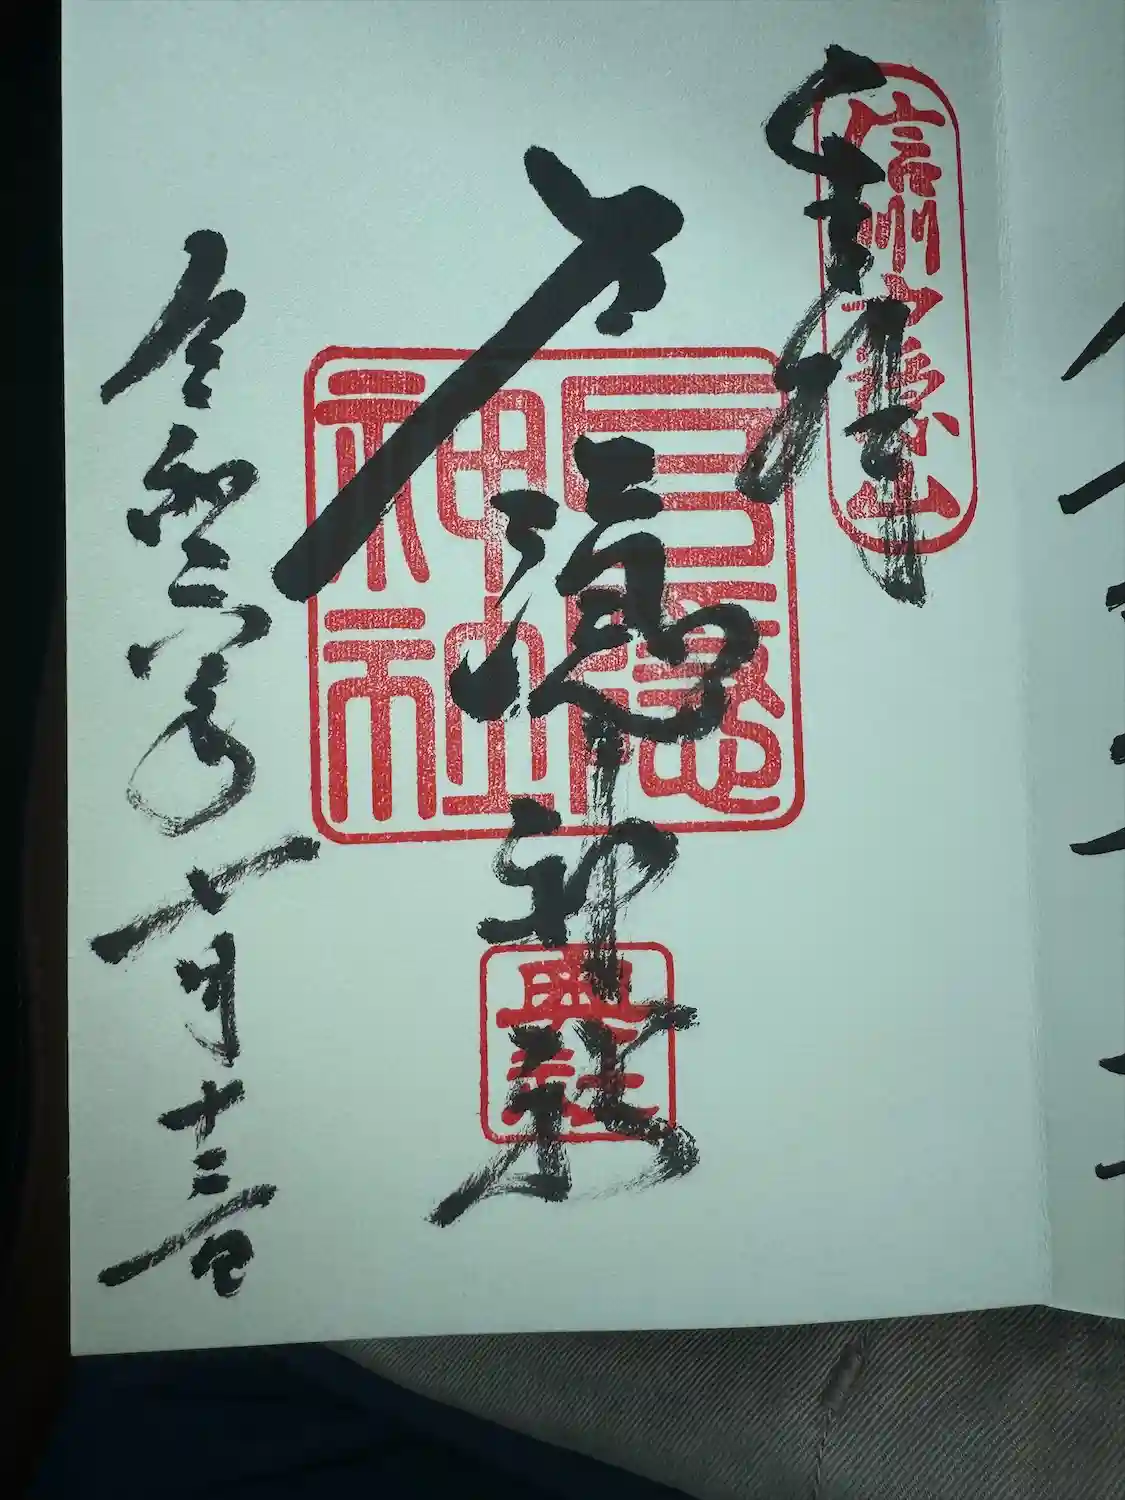 奉拝
信州戸隠山
戸隠神社
戸隠神社
奥社
令和六年 月十三日